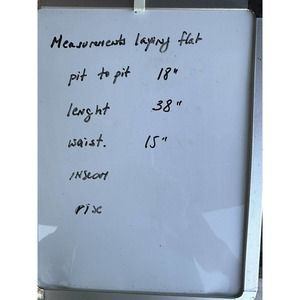 Measurements laying flat
pit to pit 18"
lenght 38"
waist. 15"
inseam
rise